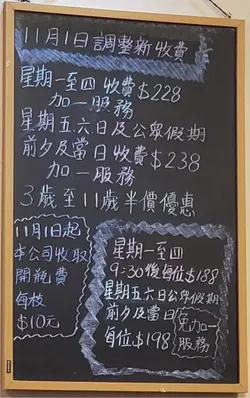 11月1日調整新收費
星期一至四 收費$228
加一服務
星期五六日及公眾假期
前夕及當日收費$238
加一服務
3歲至11歲半價優惠
11月1日起
本公司收取
開瓶費
每枝
$10元
星期一至四
9:30後每位$188
星期五六日公眾假期
前夕及當日
每位$198
免加一
服務